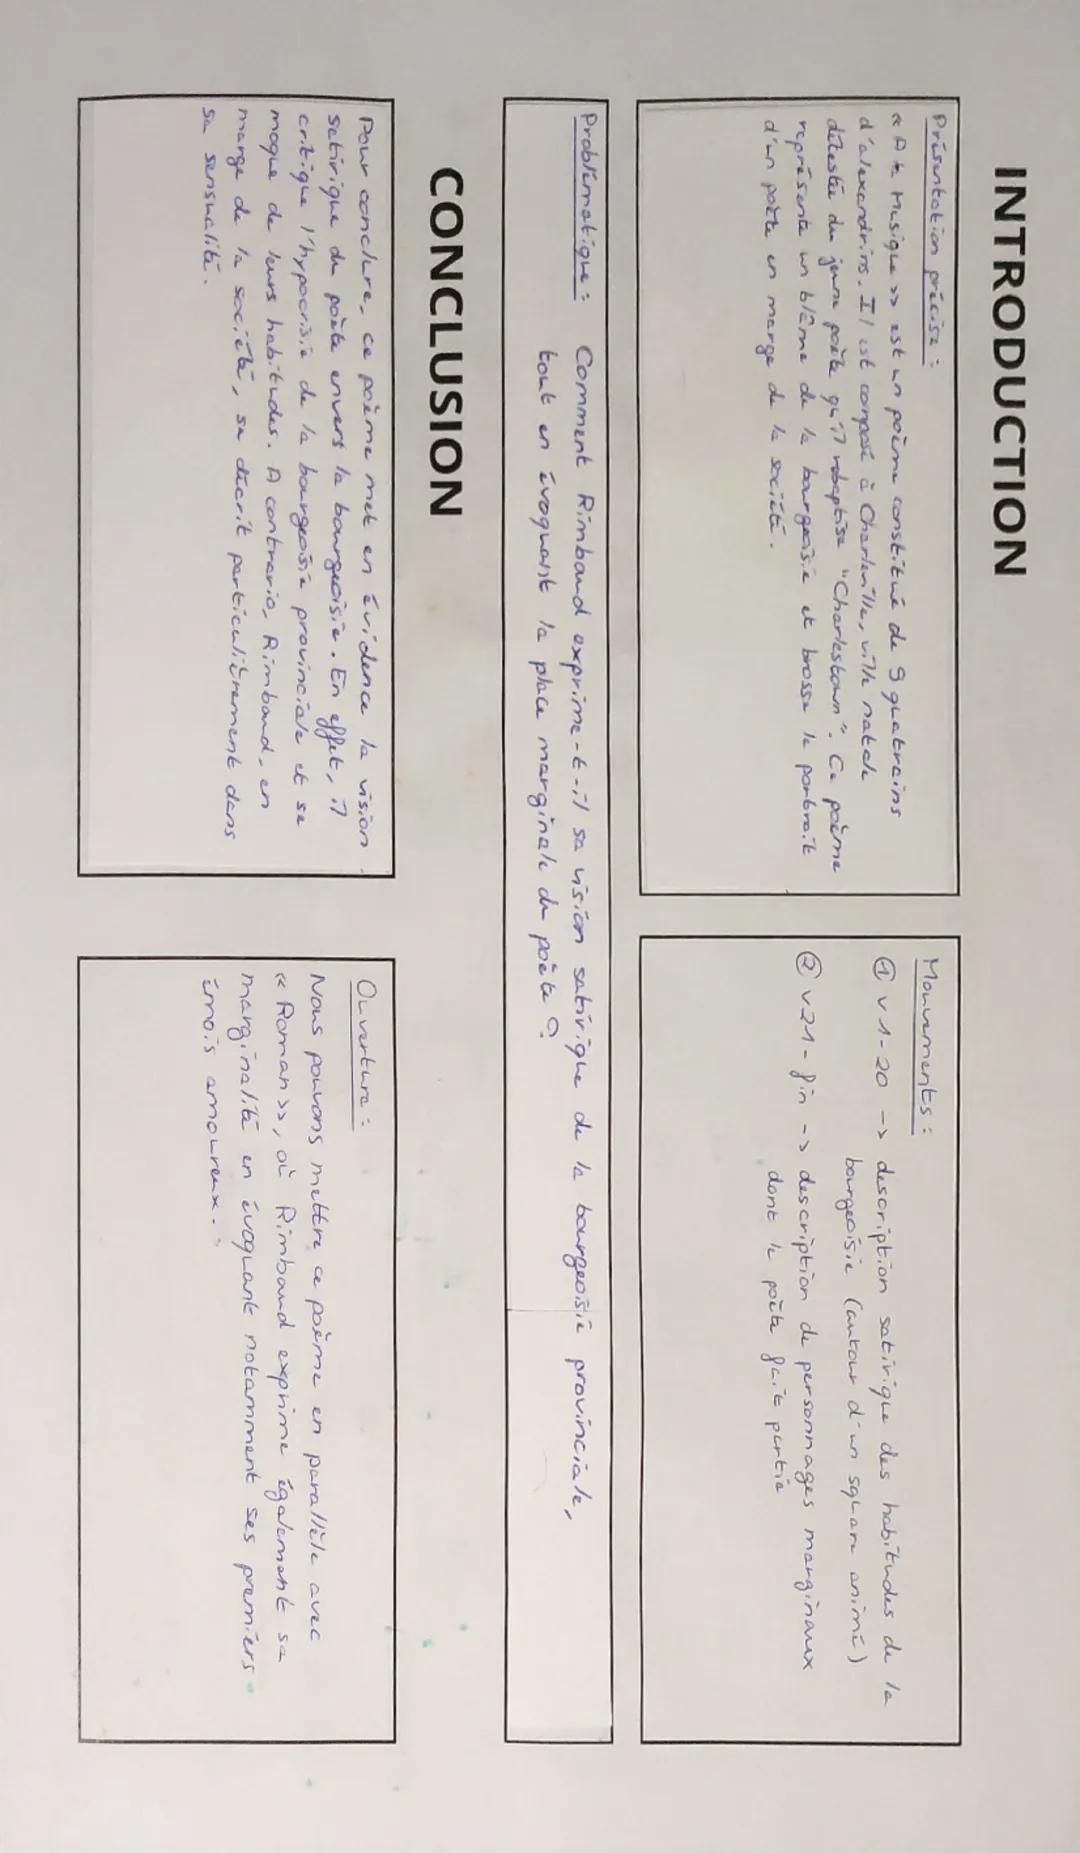 INTRODUCTION
Présentation précise :
« A la Musique » est un poème constitué de 9 quatrains
d'alexandrins. Il est composé à Charleville, ville natale
détestée du jeune poète qu'il rebaptise "Charlestown". Ce poème
représente un blâme de la bourgeoisie et brosse le portrait
d'un poète en marge de la société.
Mouvements :
① v 1-20 -> description satirique des habitudes de la
bourgeoisie (autour d'un square animé)
② v21 - fin -> description de personnages marginaux
dont le poète fait partie
Problématique : Comment Rimbaud exprime-t-il sa vision satirique de la bourgeoisie provinciale,
tout en évoquant la place marginale du poète ?
CONCLUSION
Pour conclure, ce poème met en évidence la vision
satirique du poète envers la bourgeoisie. En effet, il
critique l'hypocrisie de la bourgeoisie provinciale et se
moque de leurs habitudes. A contrario, Rimbaud, en
marge de la société, se décrit particulièrement dans
sa sensualité.
Ouverture :
Nous pouvons mettre ce poème en parallèle avec
« Roman », où Rimbaud exprime également sa
marginalité en évoquant notamment ses premiers
émois amoureux.